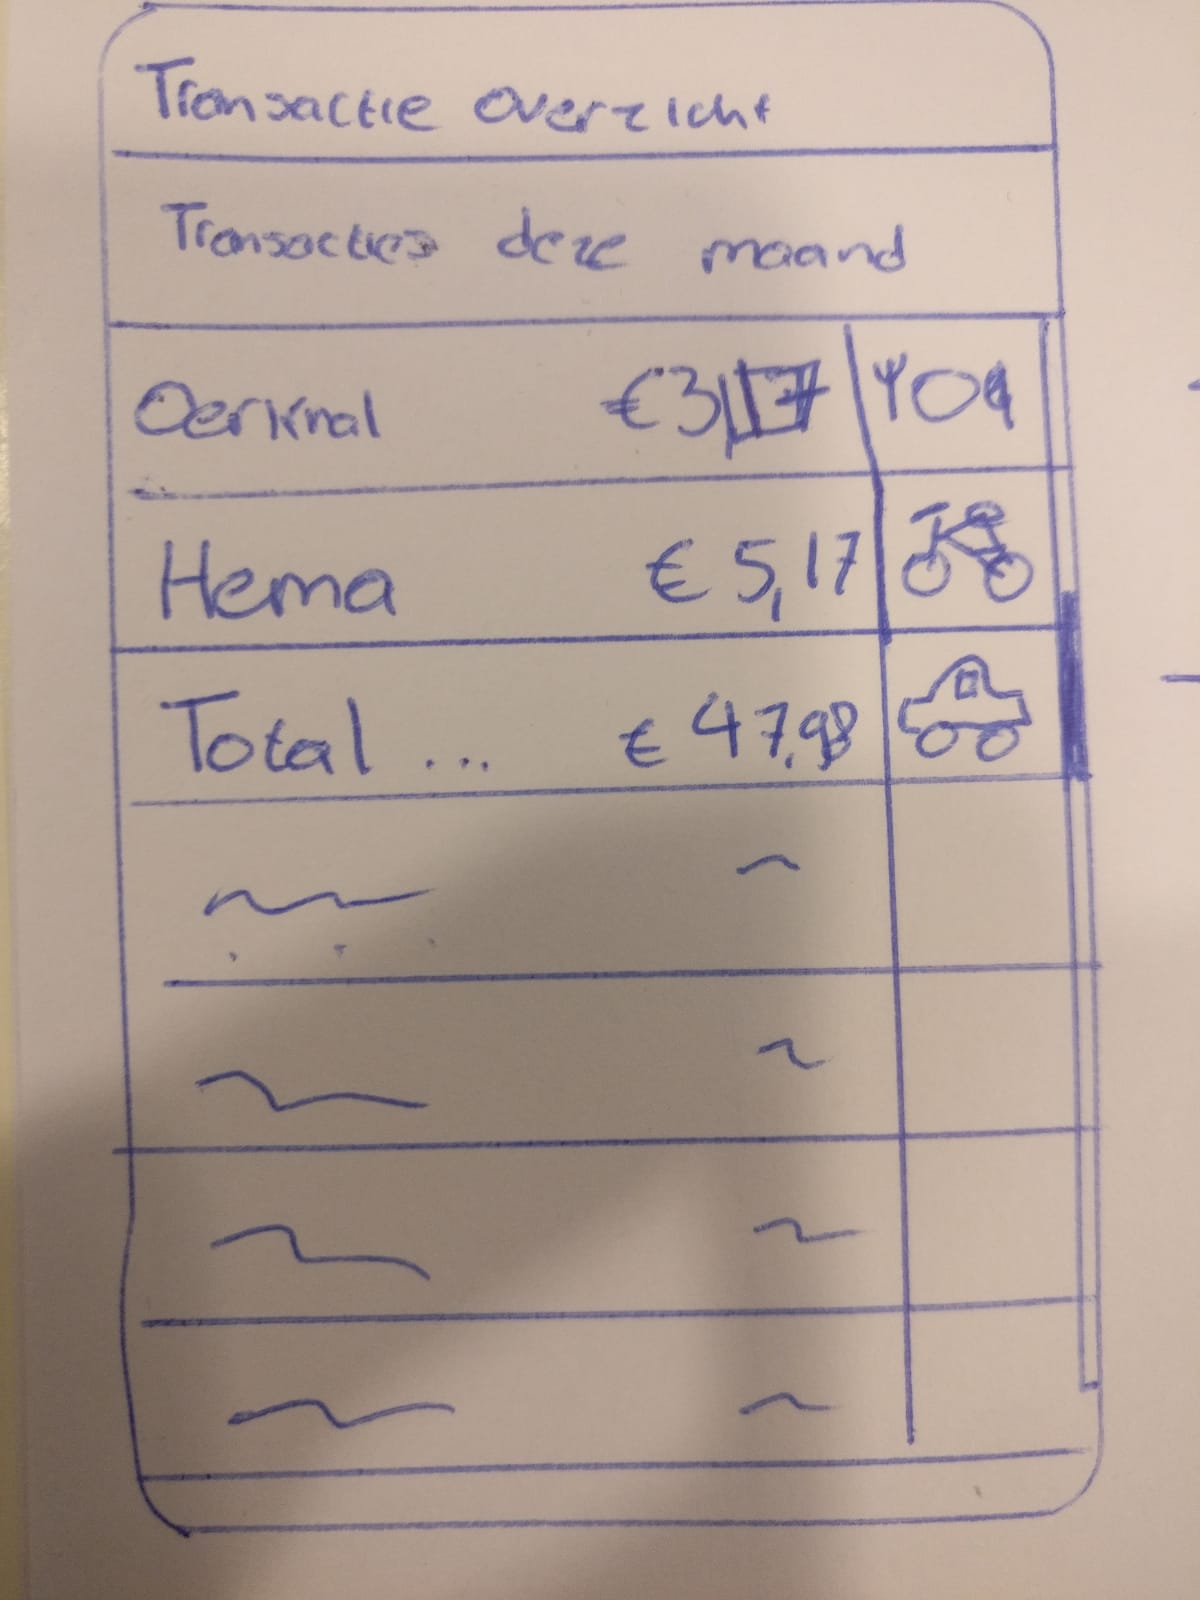 Transactie overzicht
Transacties deze maand
Oerknal €3,17
Hema € 5,17
Total ... € 47,98